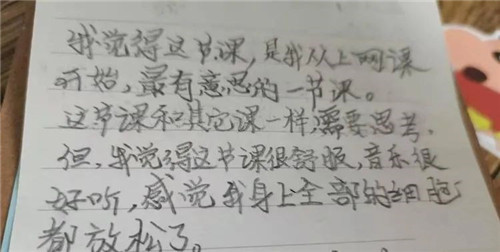 我觉得这节课，是我从上网课
开始，最有意思的一节课。
这节课和其它课一样，需要思考，
但，我觉得这节课很舒服，音乐很
好听，感觉我身上全部的细胞
都放松了。